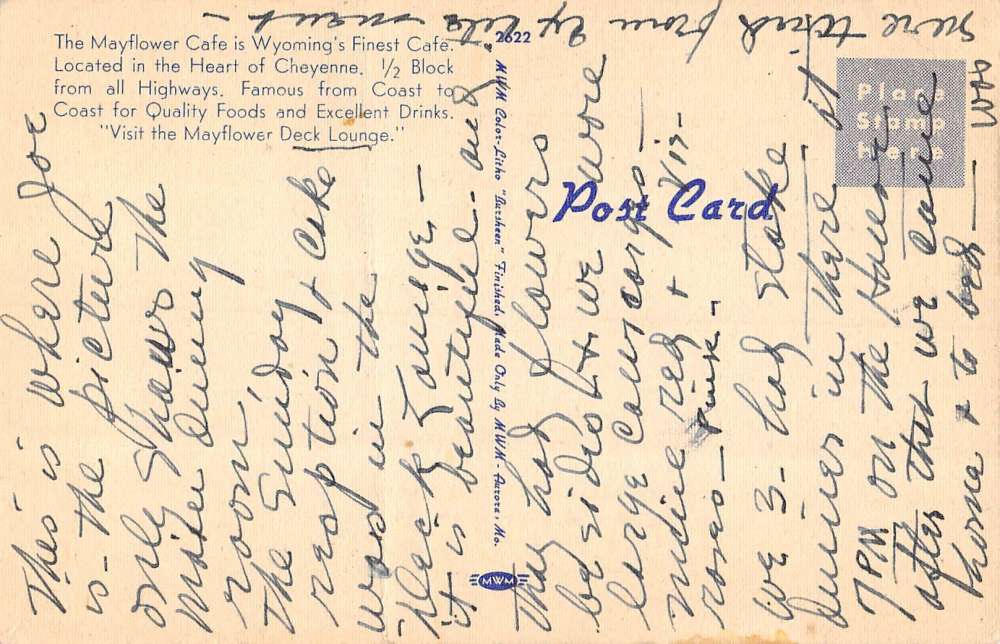 The Mayflower Cafe is Wyoming's Finest Café.
Located in the Heart of Cheyenne. 1/2 Block
from all Highways. Famous from Coast to
Coast for Quality Foods and Excellent Drinks.
"Visit the Mayflower Deck Lounge."
2622
MWM Color-Litho "Dursheen" Finished, Made Only By MWM - Aurora, Mo.
MWM
Post Card
Place
Stamp
Here
This is where Joe
is - the picture
only shows the
main dining
room
The Sunday
reaption & cake
was in the
"Deck Lounge -
it is beautiful - and
They had flowers
besides & we wore
large corsages -
mine red &
roses - pink -
We 3 - had steak
dinner in there at
7 PM on the House -
after that we came
home & to bed - was
sure tired from